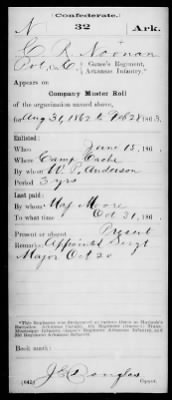 Confederate.
N 32 Ark.
C R Noonan
Pvt, Co C, Gause's Regiment,
Arkansas Infantry.*
Appears on
Company Muster Roll
of the organization named above,
for Aug 31, 1862 to Feb 28, 1863.
Enlisted:
When June 15, 186
Where Camp Cache
By whom W. P. Anderson
Period 3 yrs
Last paid:
By whom Maj Moore
To what time Oct 31, 186
Present or absent Present
Remarks: Appointed Sergt
Major Oct 20
Book mark:
J E Douglas
(642) Copyist.